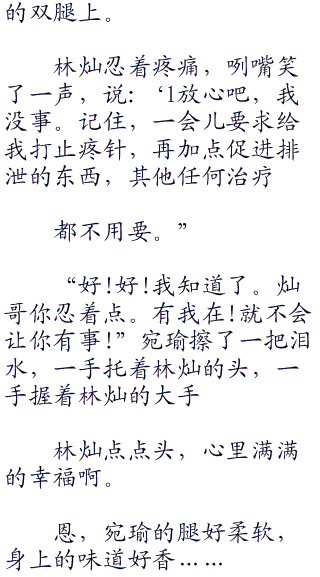 的双腿上。
林灿忍着疼痛，咧嘴笑
了一声，说：‘1放心吧，我
没事。记住，一会儿要求给
我打止疼针，再加点促进排
泄的东西，其他任何治疗
都不用要。”
“好!好!我知道了。灿
哥你忍着点。有我在!就不会
让你有事!”宛瑜擦了一把泪
水，一手托着林灿的头，一
手握着林灿的大手
林灿点点头，心里满满
的幸福啊。
恩，宛瑜的腿好柔软，
身上的味道好香……